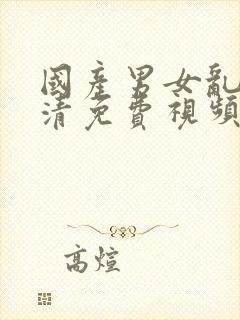 國產男女亂
清免費視頻
高煊